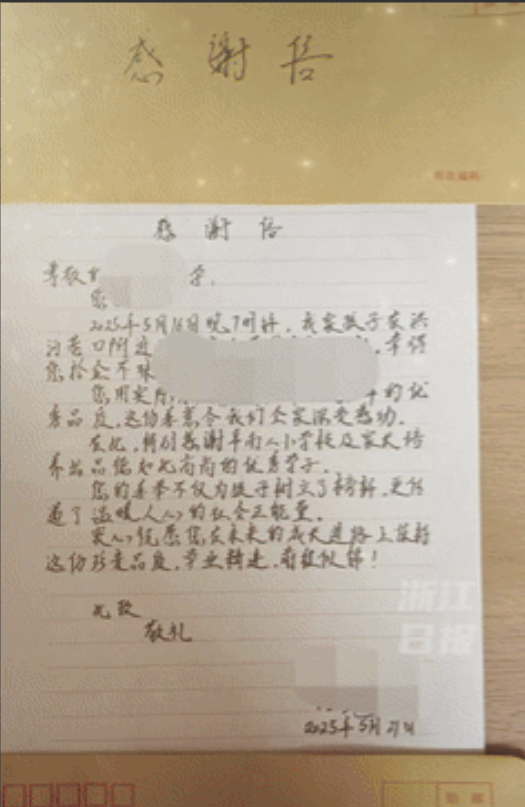 感谢信
邮政编码:
感谢信
尊敬
您
2025年5月16日晚7时许，我家孩子在洪
河巷口附近
幸得
您拾金不昧
您用实际
的优
秀品质，这份善意令我们全家深受感动。
在此，特别感谢
小学校及家长培
养出品德如此高尚的优秀学子。
您的善举不仅为孩子树立了榜样，更传
递了温暖人心的社会正能量。
衷心祝愿您在未来的成长道路上保持
这份珍贵品质，学业精进，前程似锦！
此致
敬礼
浙江
日报
2025年5月21日